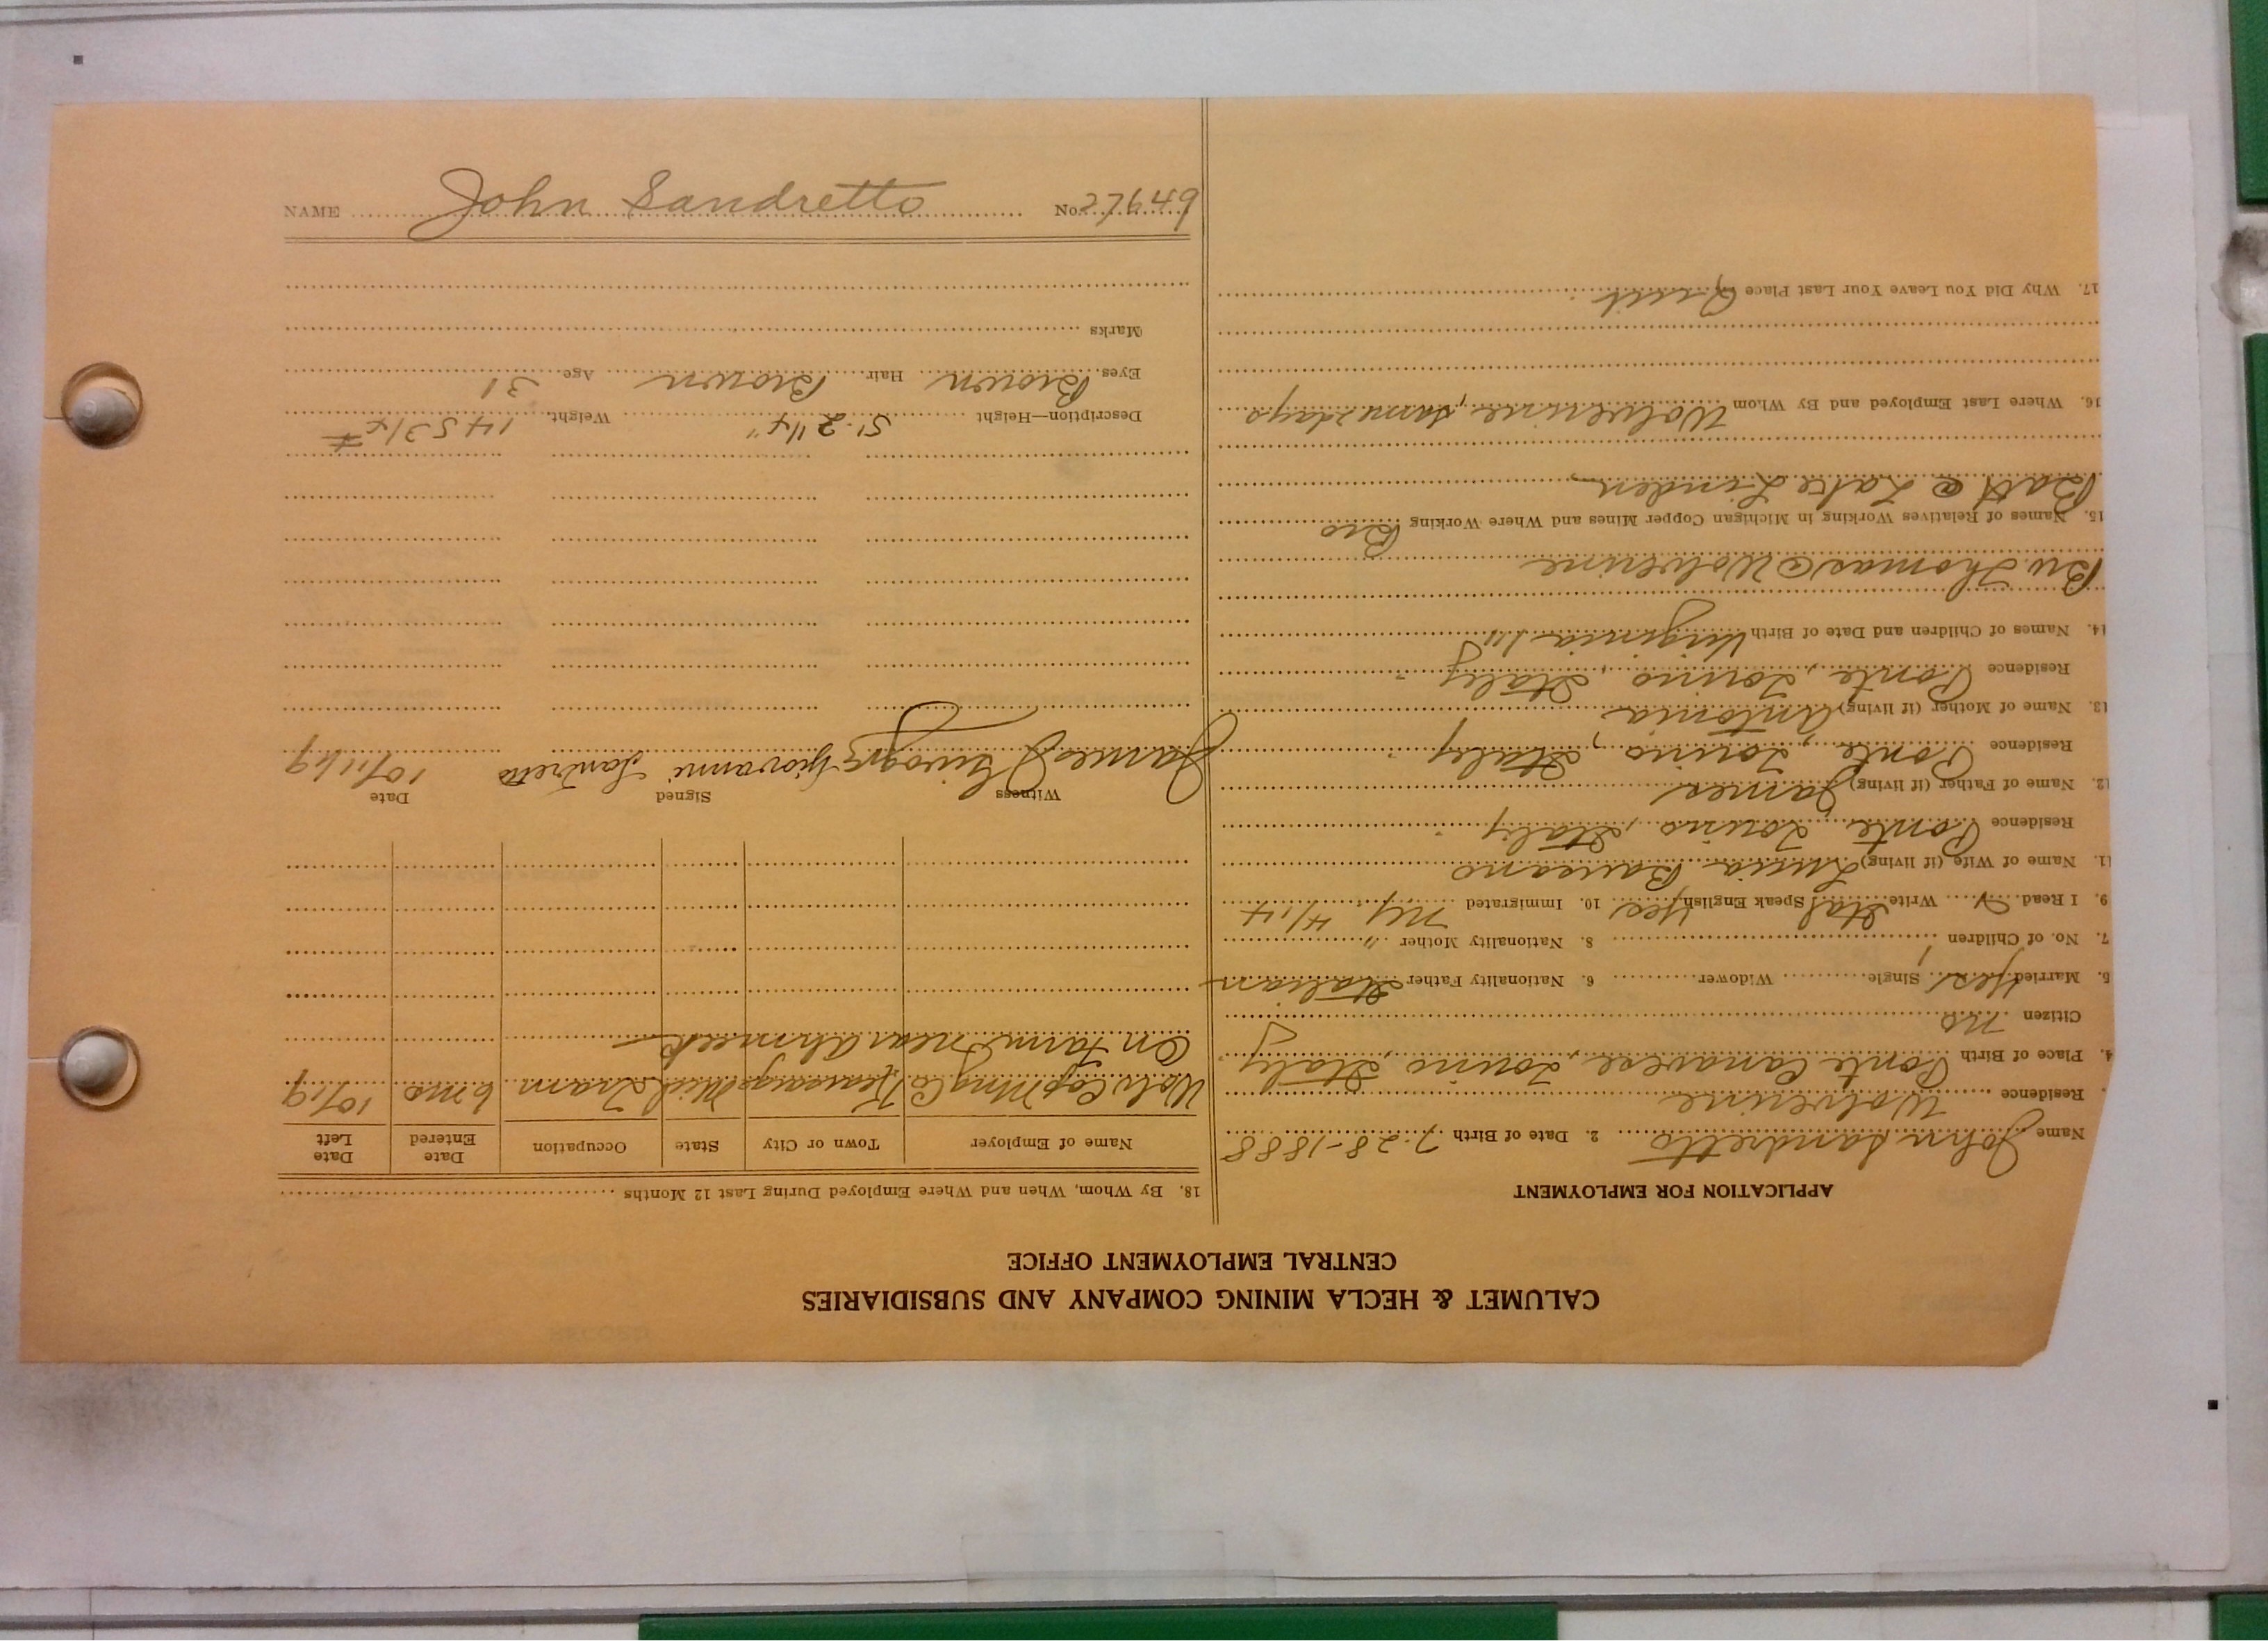 CALUMET & HECLA MINING COMPANY AND SUBSIDIARIES
CENTRAL EMPLOYMENT OFFICE
APPLICATION FOR EMPLOYMENT
Name John Sandretto 2. Date of Birth 7-28-1888
Residence Wolverine
4. Place of Birth Ponte Canavese, Torino, Italy
Citizen no
5. Married Yes Single Widower 6. Nationality Father Italian
7. No. of Children 1 8. Nationality Mother "
9. I Read Write Ital Speak English Yes 10. Immigrated NY 4/14
11. Name of Wife (if living) Lucia
Residence Ponte, Torino, Italy
12. Name of Father (if living) James
Residence Ponte, Torino, Italy
13. Name of Mother (if living) Antonia
Residence Ponte, Torino, Italy
14. Names of Children and Date of Birth Virginia
Thomas @ Wolverine
15. Names of Relatives Working in Michigan Copper Mines and Where Working Bro
@ Lake Linden
16. Where Last Employed and By Whom Wolverine, days
17. Why Did You Leave Your Last Place Quit
18. By Whom, When and Where Employed During Last 12 Months
Name of Employer Town or City State Occupation Date Entered Date Left
Wolv Cop Mng Co Mich Tram 6 mo 10/19
On farm near Ahmeek
Witness Signed Date
James Giovanni Sandretto 10/11/19
Description—Height 5'-2 1/4" Weight 145 3/4 #
Eyes Brown Hair Brown Age 31
Marks
NAME John Sandretto No. 27649